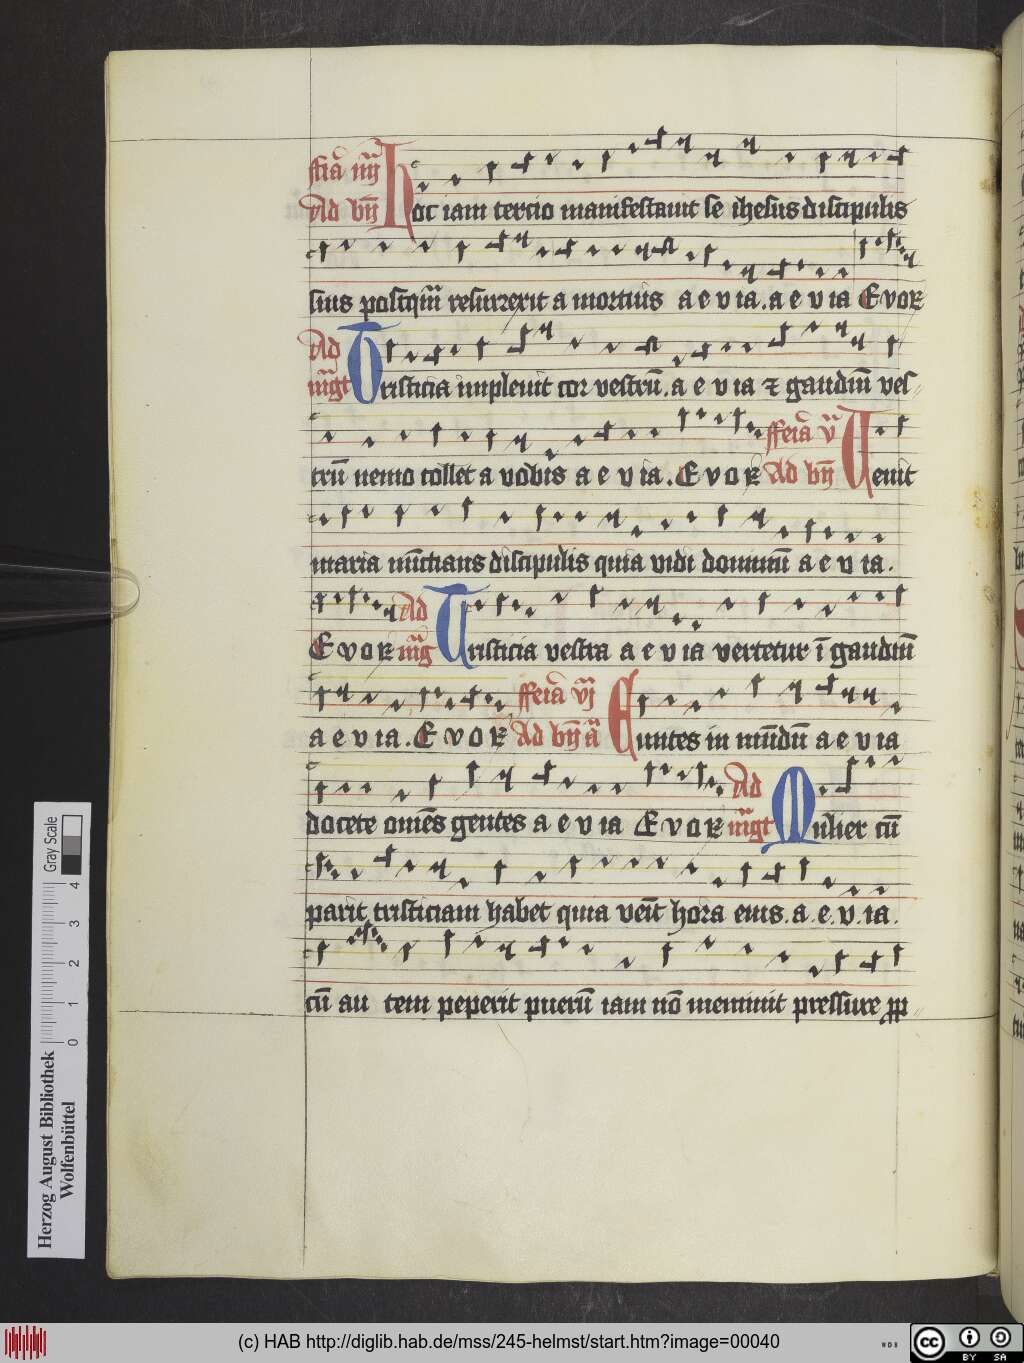 ffia iiij Hoc iam tercio manifestauit se ihesus discipulis
Ad bn̄
suis postqm̄ resurrexit a mortuis a e v ia . a e v ia E v o v
Ad mgt Tristicia impleuit cor vestrū . a e v ia ⁊ gaudiū ves
trū nemo tollet a vobis a e v ia . E v o v ffeia v Ad bn̄ Venit
maria nūctians discipulis quia vidi dominū a e v ia .
E v o v Ad mg Tristicia vestra a e v ia vertetur ī gaudiū
a e v ia . E v o v ffeia vj Ad bn̄ a Euntes in mūdū a e v ia
docete omēs gentes a e v ia E v o v Ad mgt Mulier cū
parit tristiciam habet quia venit hora eius . a . e . v . ia .
cū au tem peperit puerū iam nō meminit pressure pp
Gray Scale
0 1 2 3 4
Herzog August Bibliothek
Wolfenbüttel
(c) HAB http://diglib.hab.de/mss/245-helmst/start.htm?image=00040
WDB
cc BY SA